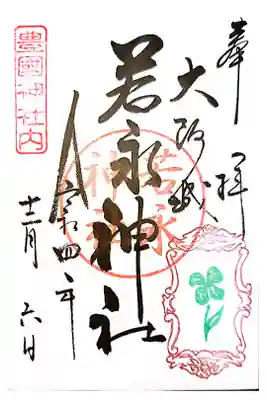 奉拝
大阪城
若永神社
若永神社
令和四年
十二月六日
豊國神社内